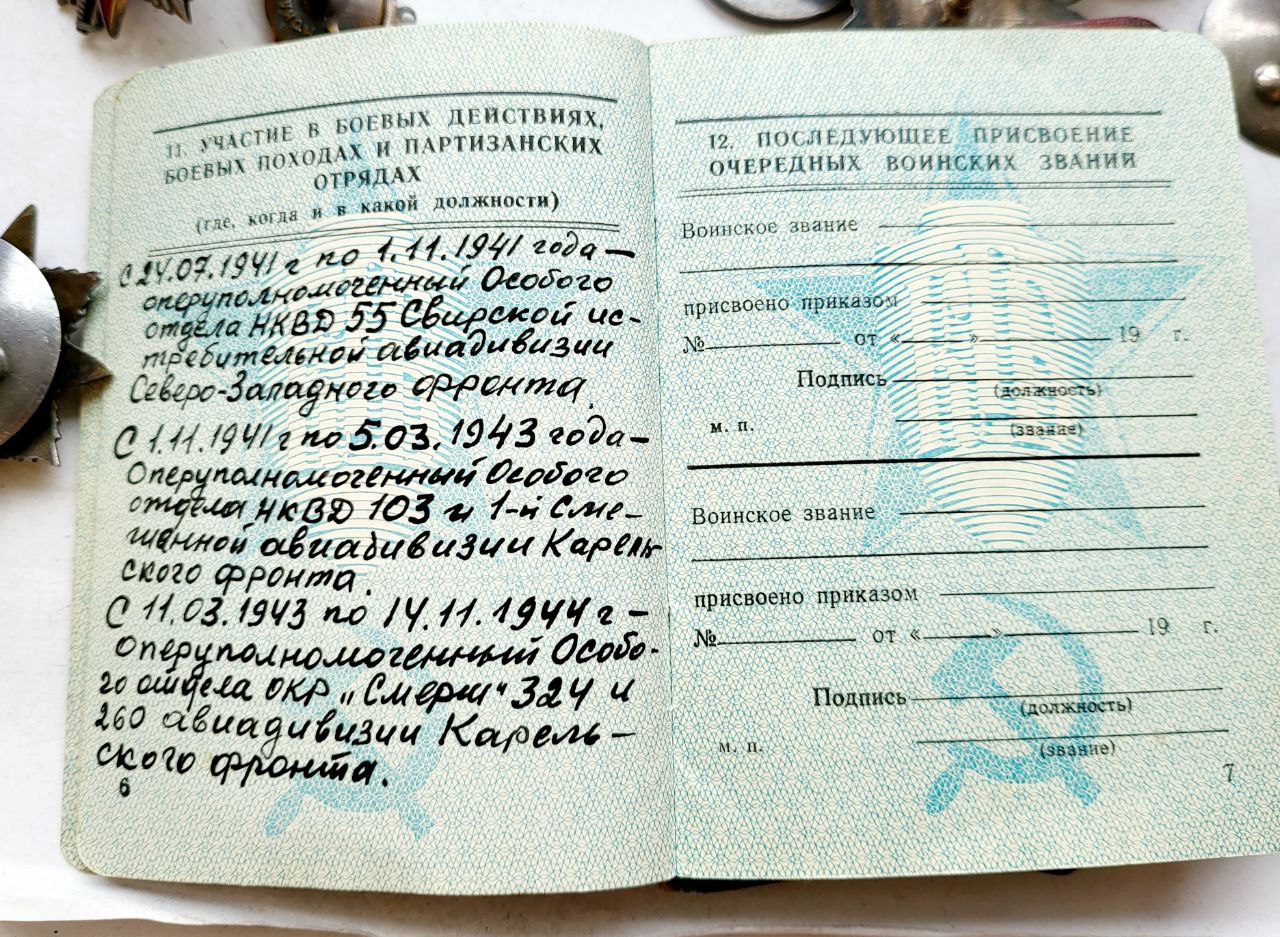 11. УЧАСТИЕ В БОЕВЫХ ДЕЙСТВИЯХ,
БОЕВЫХ ПОХОДАХ И ПАРТИЗАНСКИХ
ОТРЯДАХ
(где, когда и в какой должности)
С 24.07.1941 г по 1.11.1941 года —
оперуполномоченный Особого
отдела НКВД 55 Свирской ис-
требительной авиадивизии
Северо-Западного фронта.
С 1.11.1941 г по 5.03.1943 года —
Оперуполномоченный Особого
отдела НКВД 103 и 1-й Сме-
шанной авиадивизии Карель-
ского фронта.
С 11.03.1943 по 14.11.1944 г —
Оперуполномоченный Особо-
го отдела ОКР „Смерш" 324 и
260 авиадивизии Карель-
ского фронта.
6
12. ПОСЛЕДУЮЩЕЕ ПРИСВОЕНИЕ
ОЧЕРЕДНЫХ ВОИНСКИХ ЗВАНИЙ
Воинское звание
присвоено приказом
№ от « » 19 г.
Подпись
(должность)
м. п.
(звание)
Воинское звание
присвоено приказом
№ от « » 19 г.
Подпись
(должность)
м. п.
(звание)
7